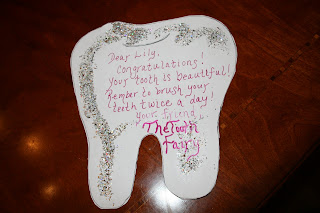 Dear Lily,
Congratulations!
Your tooth is beautiful!
Rember to brush your
teeth twice a day!
Your friend,
The Tooth
Fairy